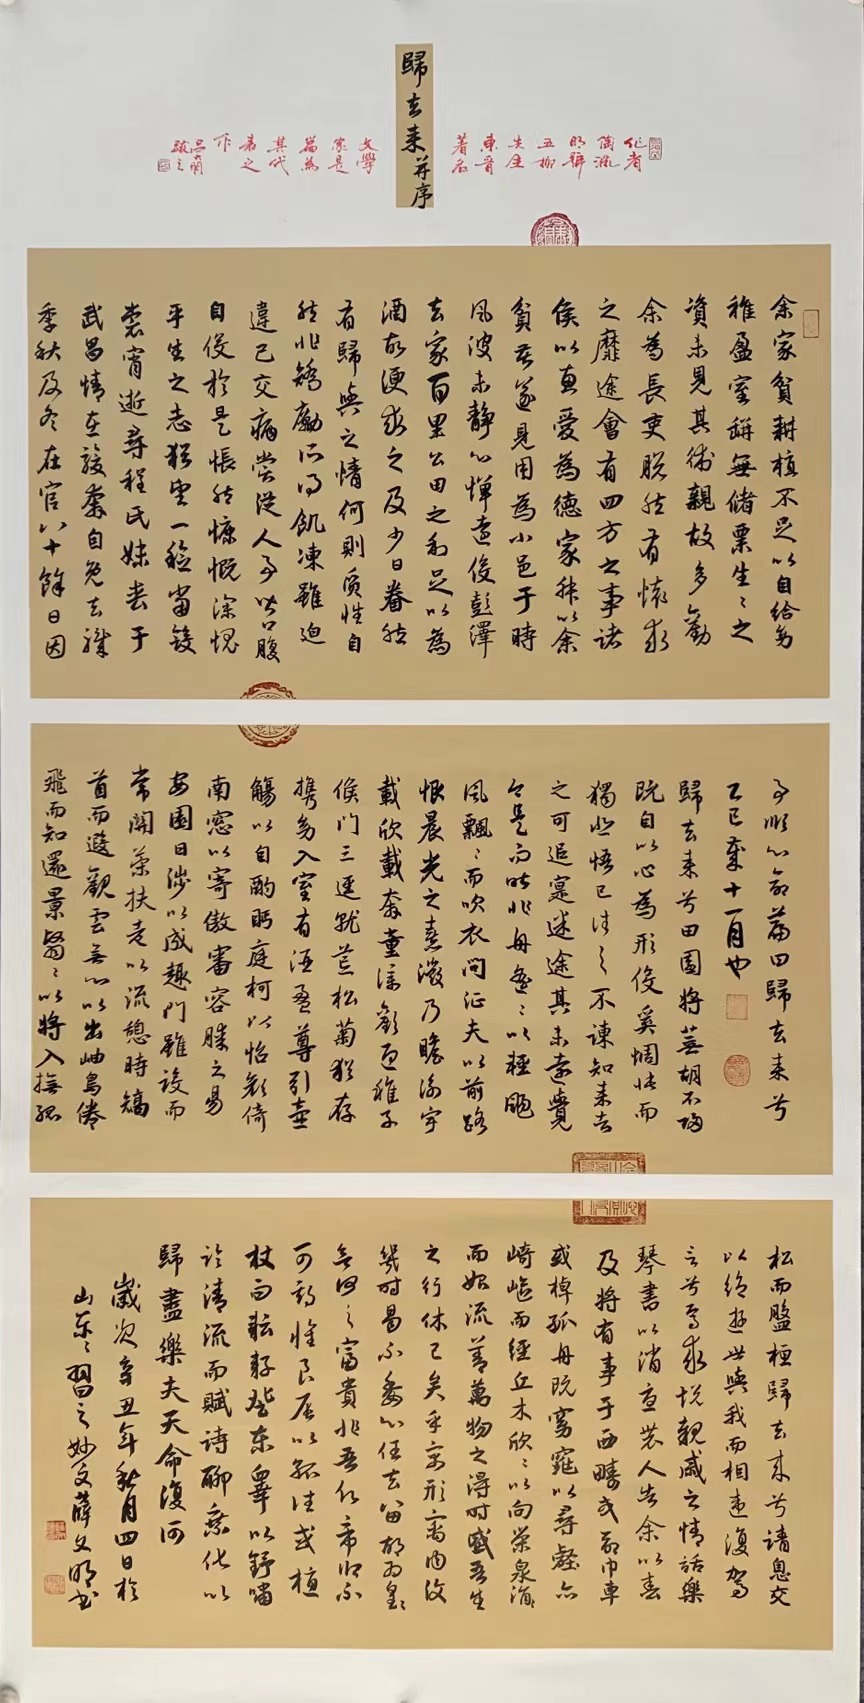 歸去来并序
作者
陶淵
明號
五柳
先生
東晋
著名
文學
家是
篇為
其代
表之
作
余家貧耕植不足以自給幼
稚盈室缾無儲粟生〻之
資未見其術親故多勸
余為長吏脱然有懷求
之靡途會有四方之事諸
侯以惠愛為德家叔以余
貧苦遂見用為小邑于時
風波未静心憚遠役彭澤
去家百里公田之利足以為
酒故便求之及少日眷然
有歸與之情何則质性自
然非矯勵所得飢凍雖迫
違己交病嘗從人事皆口腹
自役於是悵然慷慨深愧
平生之志猶望一稔當斂
裳宵逝尋程氏妹丧于
武昌情在駿奔自免去職
季秋及冬在官八十餘日因
事順心命篇曰歸去来兮
乙巳歲十一月也
歸去来兮田園將蕪胡不歸
既自以心為形役奚惆悵而
獨悲悟已往之不諫知来者
之可追寔迷途其未遠覺
今是而昨非舟遥〻以輕颺
風飄〻而吹衣問征夫以前路
恨晨光之熹微乃瞻衡宇
載欣載奔童僕歡迎稚子
候門三逕就荒松菊猶存
携幼入室有酒盈尊引壺
觴以自酌眄庭柯以怡颜倚
南窓以寄傲審容膝之易
安園日涉以成趣門雖設而
常關策扶老以流憩時矯
首而遐觀雲無心以出岫鳥倦
飛而知還景翳〻以將入撫孤
松而盤桓歸去来兮請息交
以絶遊世與我而相違復駕
言兮焉求悦親戚之情話樂
琴書以消憂農人告余以春
及將有事于西疇或命巾車
或棹孤舟既窈窕以尋壑亦
崎嶇而經丘木欣〻以向荣泉涓〻
而始流善萬物之得时感吾生
之行休已矣乎寓形宇内復
幾时曷不委心任去留胡为遑〻
何之富貴非吾願帝鄉不
可期懷良辰以孤往或植
杖而耘耔登東皋以舒嘯
臨清流而賦诗聊乘化以
歸盡樂夫天命復何
歲次辛丑年秋月四日於
山東〻習之妙文薛文明书